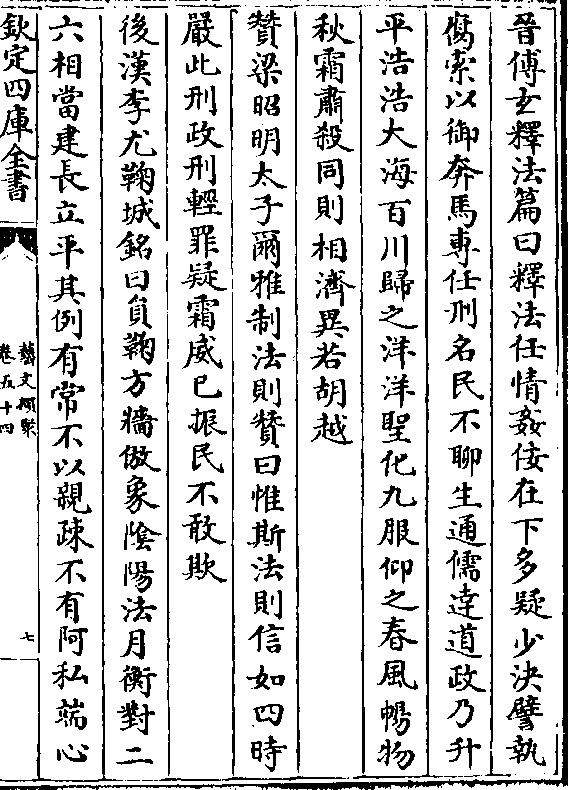 晉傅玄釋法篇曰釋法任情姦佞在下多疑少決譬執
腐索以御奔馬專任刑名民不聊生通儒達道政乃升
平浩浩大海百川歸之洋洋聖化九服仰之春風暢物
秋霜肅殺同則相濟異若胡越
贊梁昭明太子爾雅制法則贊曰惟斯法則信如四時
嚴此刑政刑輕罪疑霜威已振民不敢欺
後漢李尤鞠城銘曰員鞠方牆倣象陰陽法月衡對二
六相當建長立平其例有常不以親疎不有阿私端心
欽定四庫全書
藝文類聚
卷五十四
七